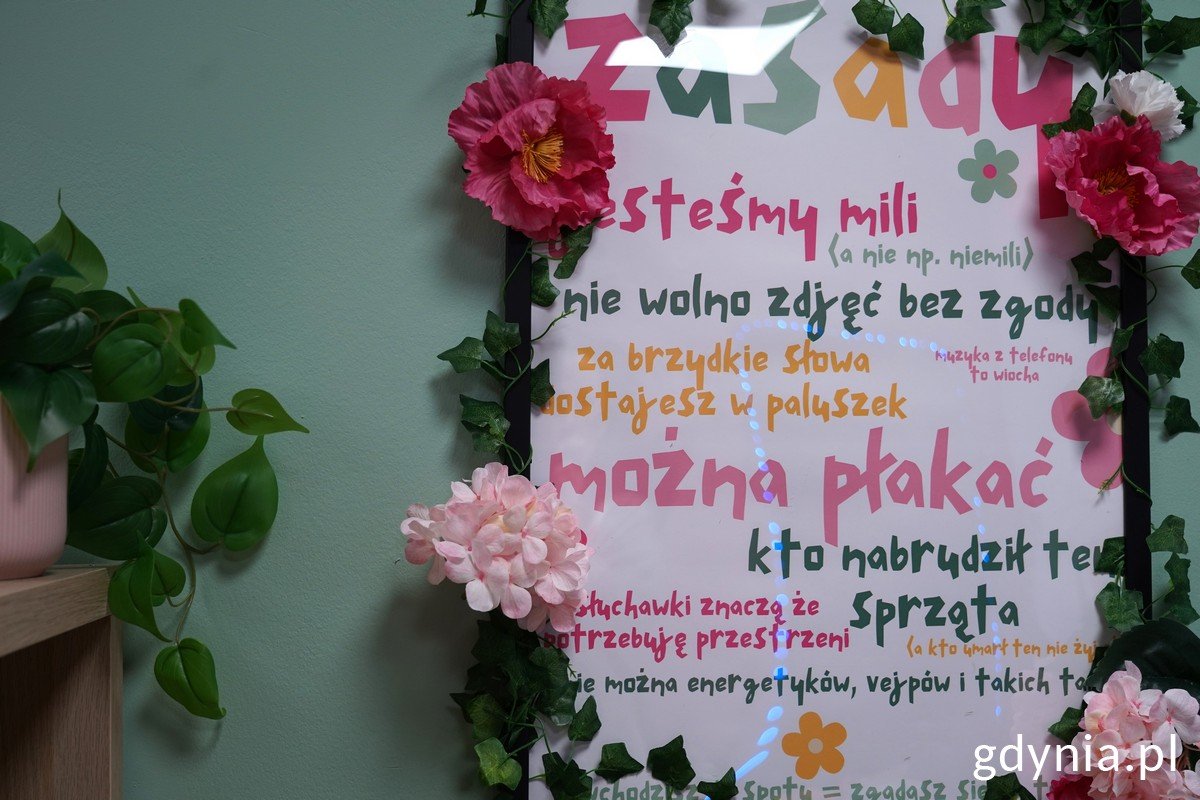 zasady
jesteśmy mili
(a nie np. niemili)
nie wolno zdjęć bez zgody
za brzydkie słowa
dostajesz w paluszek
muzyka z telefonu
to wiocha
można płakać
kto nabrudził ten
sprząta
słuchawki znaczą że
potrzebuję przestrzeni
(a kto umarł ten nie żyj
nie można energetyków, vejpów i takich ta
spoty = zgadasz się
gdynia.pl